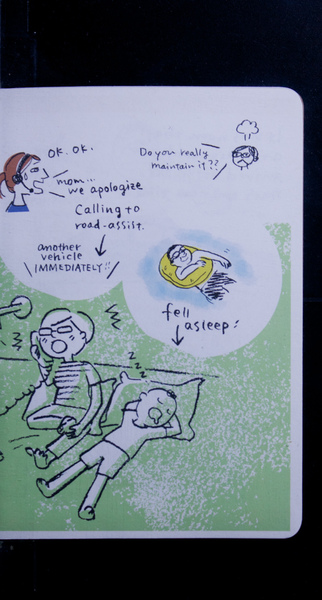 OK. OK.
mom...
we apologize
Calling to
road-assist.
another
vehicle
IMMEDIATELY!!
Do you really
maintain it??
fell
asleep!
z z z